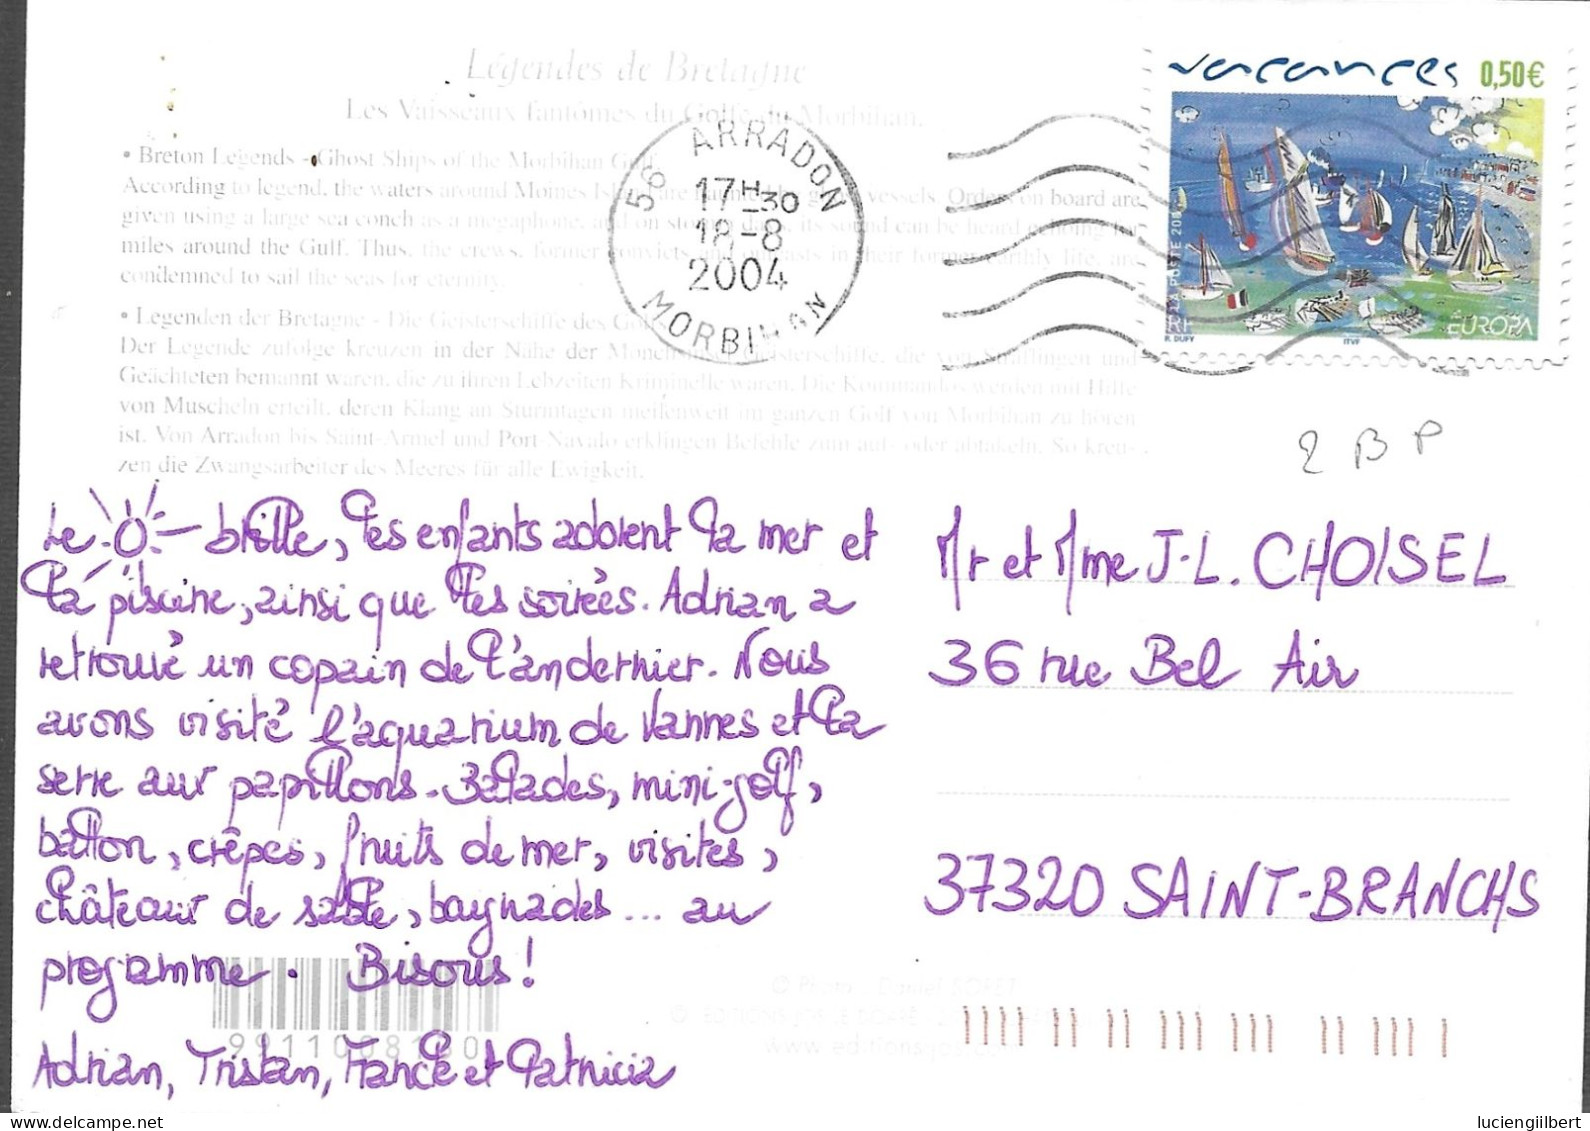 Légendes de Bretagne
Les Vaisseaux fantômes du Golfe du Morbihan.
• Breton Legends - Ghost Ships of the Morbihan Gulf.
According to legend, the waters around Moines Island are haunted by ghost vessels. Orders on board are
given using a large sea conch as a megaphone, and on stormy days, its sound can be heard echoing for
miles around the Gulf. Thus, the crews, former convicts and outcasts in their former earthly life, are
condemned to sail the seas for eternity.
• Legenden der Bretagne - Die Geisterschiffe des Golfs
Der Legende zufolge kreuzen in der Nähe der Mönchsinsel Geisterschiffe, die von Sträflingen und
Geächteten bemannt waren, die zu ihren Lebzeiten Kriminelle waren. Die Kommandos werden mit Hilfe
von Muscheln erteilt, deren Klang an Sturmtagen meilenweit im ganzen Golf von Morbihan zu hören
ist. Von Arradon bis Saint-Armel und Port-Navalo erklingen Befehle zum auf- oder abtakeln. So kreu-
zen die Zwangsarbeiter des Meeres für alle Ewigkeit.
56 ARRADON
17H30
18-8
2004
MORBIHAN
vacances 0,50€
LA POSTE 2004
RF
EUROPA
R. DUFY
ITVF
2 B P
Le brille, les enfants adorent la mer et
la piscine, ainsi que les soirées. Adrian a
retrouvé un copain de l'an dernier. Nous
avons visité l'aquarium de Vannes et la
serre aux papillons. Balades, mini-golf,
ballon, crêpes, fruits de mer, visites,
châteaux de sable, baignades... au
programme. Bisous!
Adrian, Tristan, France et Patricia
Mr et Mme J-L. CHOISEL
36 rue Bel Air
37320 SAINT-BRANCHS
© Photo : Daniel
www.editionsjos.com
luciengilbert